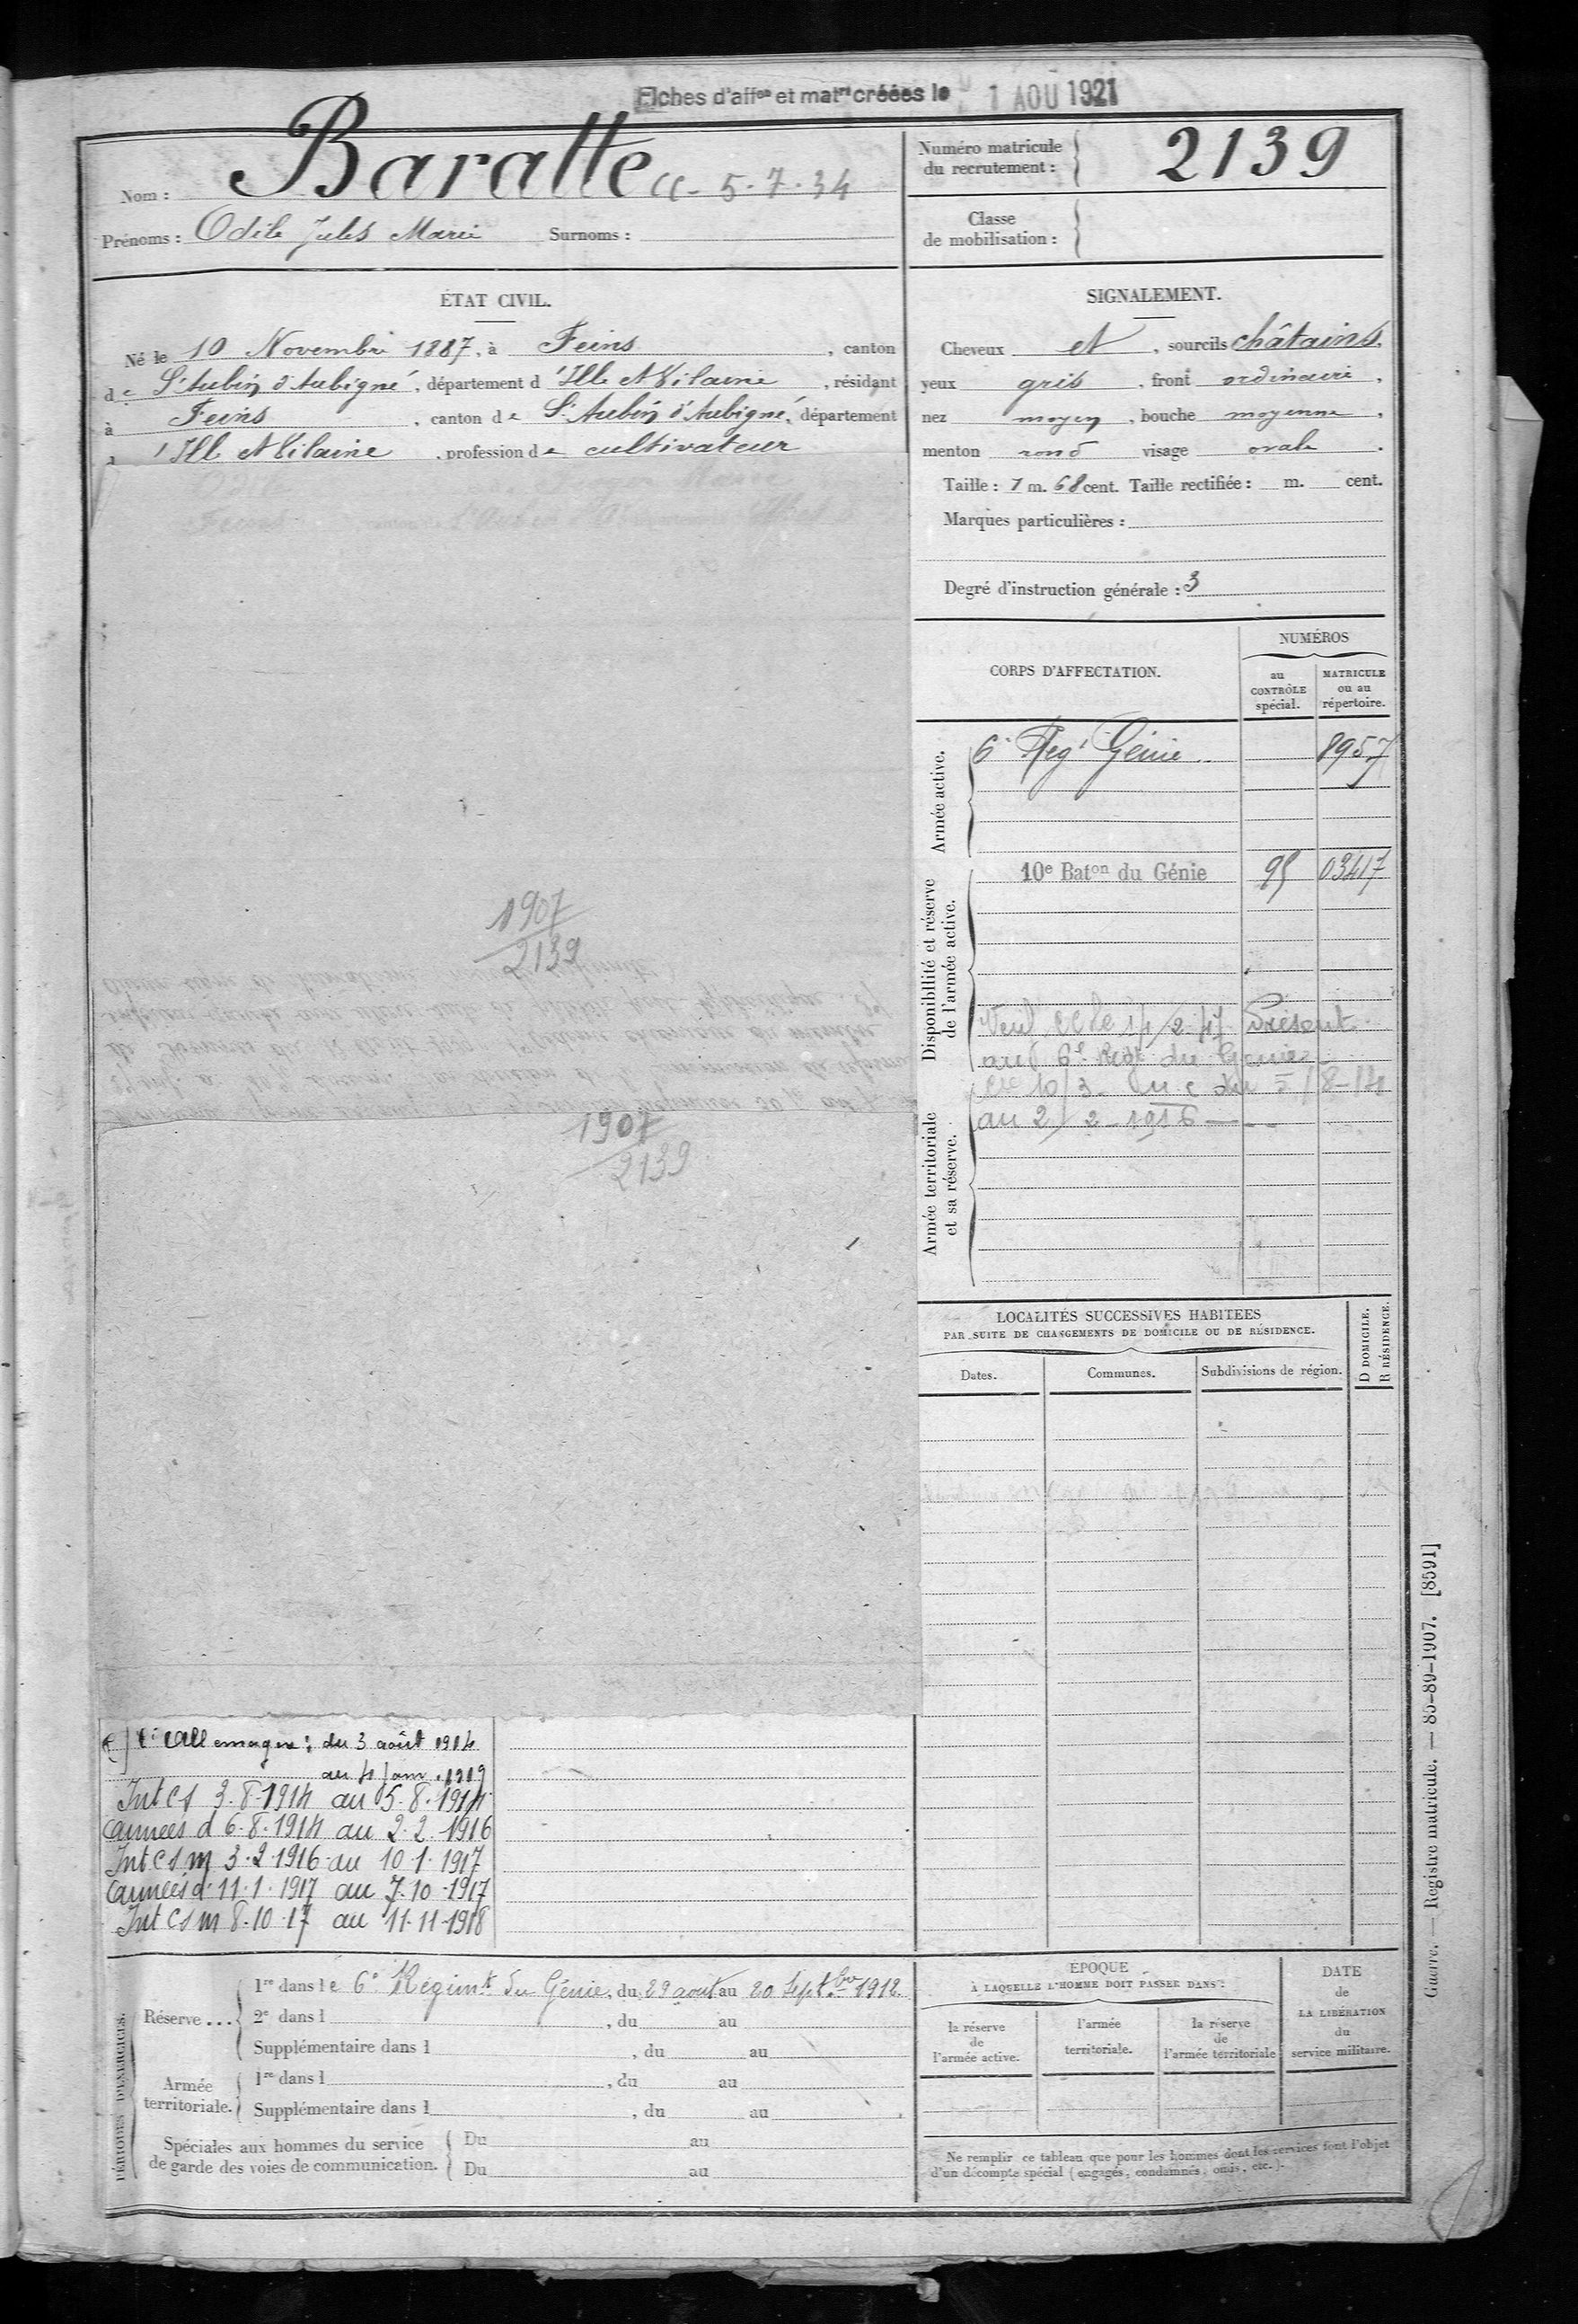 Fiches d'aff<sup>on</sup> et mat<sup>les</sup> créées le 1 AOU 1921
Nom : Baratte cc. 5.7.34
Prénoms : Odile Jules Marie Surnoms :
Numéro matricule
du recrutement : 2139
Classe
de mobilisation :
ÉTAT CIVIL.
Né le 10 Novembre 1887, à Feins , canton
de St Aubin d'Aubigné, département d'Ille et Vilaine , résidant
à Feins , canton de St Aubin d'Aubigné, département
d'Ille et Vilaine , profession de cultivateur
1907
2139
1907
2139
C) C. Allemagne : du 3 août 1914
au 4 Janv. 1919
Int CS 3.8.1914 au 5.8.1914
Cannées d 6.8.1914 au 2.2.1916
Int CS m 3.2.1916 au 10.1.1917
Cannées d 11.1.1917 au 7.10.1917
Int CS m 8.10.17 au 11.11.1918
SIGNALEMENT.
Cheveux et , sourcils châtains,
yeux gris , front ordinaire ,
nez moyen , bouche moyenne ,
menton rond visage ovale .
Taille : 1 m. 68 cent. Taille rectifiée : m. cent.
Marques particulières :
Degré d'instruction générale : 3
CORPS D'AFFECTATION.
NUMÉROS
au
CONTRÔLE
spécial.
MATRICULE
ou au
répertoire.
Armée active.
6e Régt Génie 8957
Disponibilité et réserve
de l'armée active.
10e Baton du Génie 95 03417
Présent
au 6e Régt du Génie
Armée territoriale
et sa réserve.
au 2/2 1916
LOCALITÉS SUCCESSIVES HABITÉES
PAR SUITE DE CHANGEMENTS DE DOMICILE OU DE RÉSIDENCE.
Dates.
Communes.
Subdivisions de région.
D DOMICILE.
R RÉSIDENCE.
PÉRIODES D'EXERCICES.
Réserve...
1re dans le 6e Régimt du Génie, du 29 aout au 20 Septbre 1912
2e dans l , du au
Supplémentaire dans l , du au
Armée
territoriale.
1re dans l , du au
Supplémentaire dans l , du au
Spéciales aux hommes du service
de garde des voies de communication.
Du au
Du au
ÉPOQUE
À LAQUELLE L'HOMME DOIT PASSER DANS :
la réserve
de
l'armée active.
l'armée
territoriale.
la réserve
de
l'armée territoriale
DATE
de
LA LIBÉRATION
du
service militaire.
Ne remplir ce tableau que pour les hommes dont les services font l'objet
d'un décompte spécial (engagés, condamnés, omis, etc.).
Guerre. — Registre matricule. — 85-89-1907. [8591]